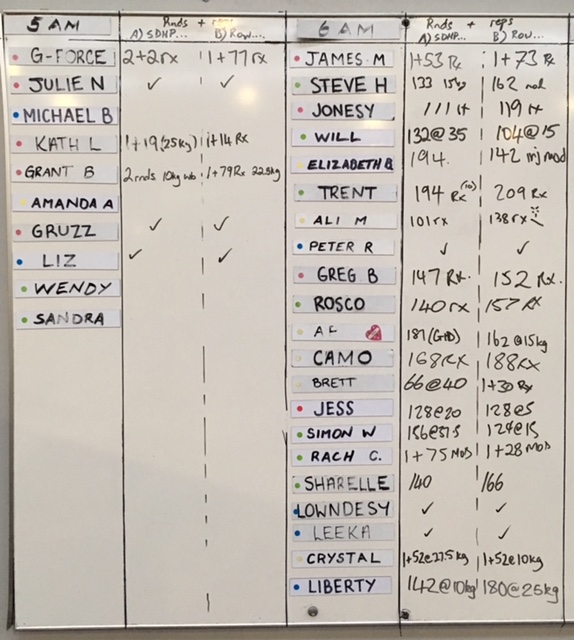 5 AM Rnds + reps
A) SDHP... B) Row...
G-FORCE 2+2rx 1+77rx
JULIE N ✓ ✓
MICHAEL B
KATH L 1+19(25kg) 1+14Rx
GRANT B 2rnds 10kg wb 1+79Rx 22.5kg
AMANDA A
GRUZZ ✓ ✓
LIZ ✓ ✓
WENDY
SANDRA
6 AM Rnds + reps
A) SDHP... B) Row...
JAMES M 1+53 Rx 1+73 Rx
STEVE H 133 162
JONESY 111 119 rx
WILL 132@35 104@15
ELIZABETH B 194. 142 inj mod
TRENT 194 Rx 209Rx
ALI M 101rx 138rx
PETER R ✓ ✓
GREG B 147 Rx. 152 Rx.
ROSCO 140rx 157 RX
AF 162@15kg
CAMO 168RX 188RX
BRETT 66@40 1+30 Rx
JESS 128@20 128@5
SIMON W 127@15
RACH C. 1+75 MOD 1+28 MOD
SHARELLE 140 166
LOWNDESY ✓ ✓
LEEKA ✓ ✓
CRYSTAL 1+52@27.5kg 1+52@10kg
LIBERTY 142@10kg 180@25kg